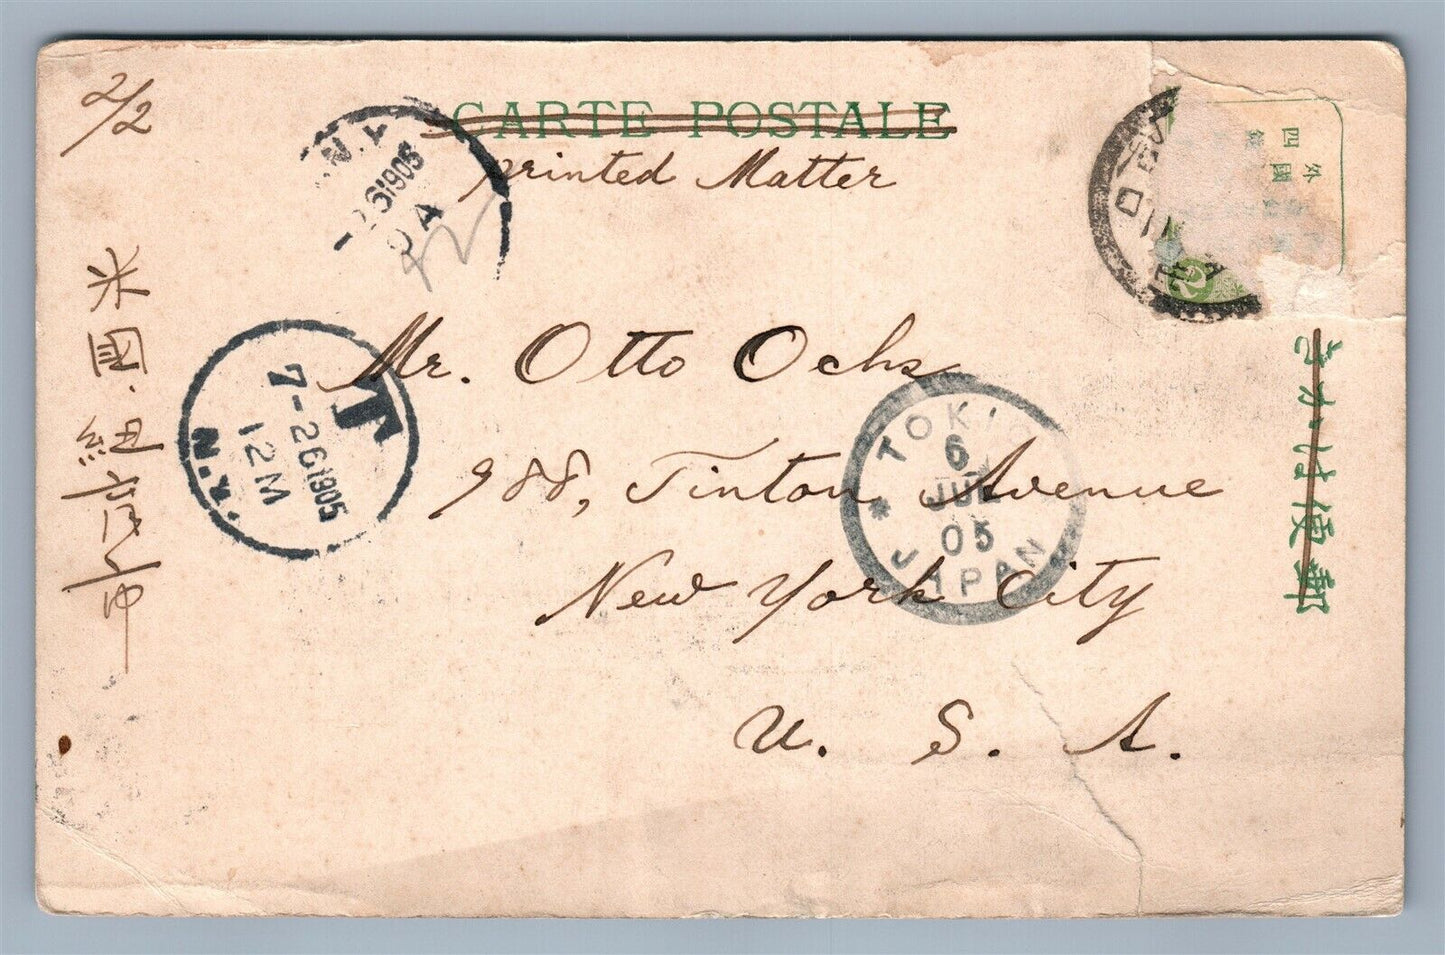 2/2
CARTE POSTALE
printed Matter
N.Y.
7-261905
Mr. Otto Ochs
988, Tinton Avenue
New York City
U. S. A.
米國.紐育市
N.Y.
7-261905
12M
T
TOKIO
6
JUL
05
JAPAN
外
四國
きがは便郵